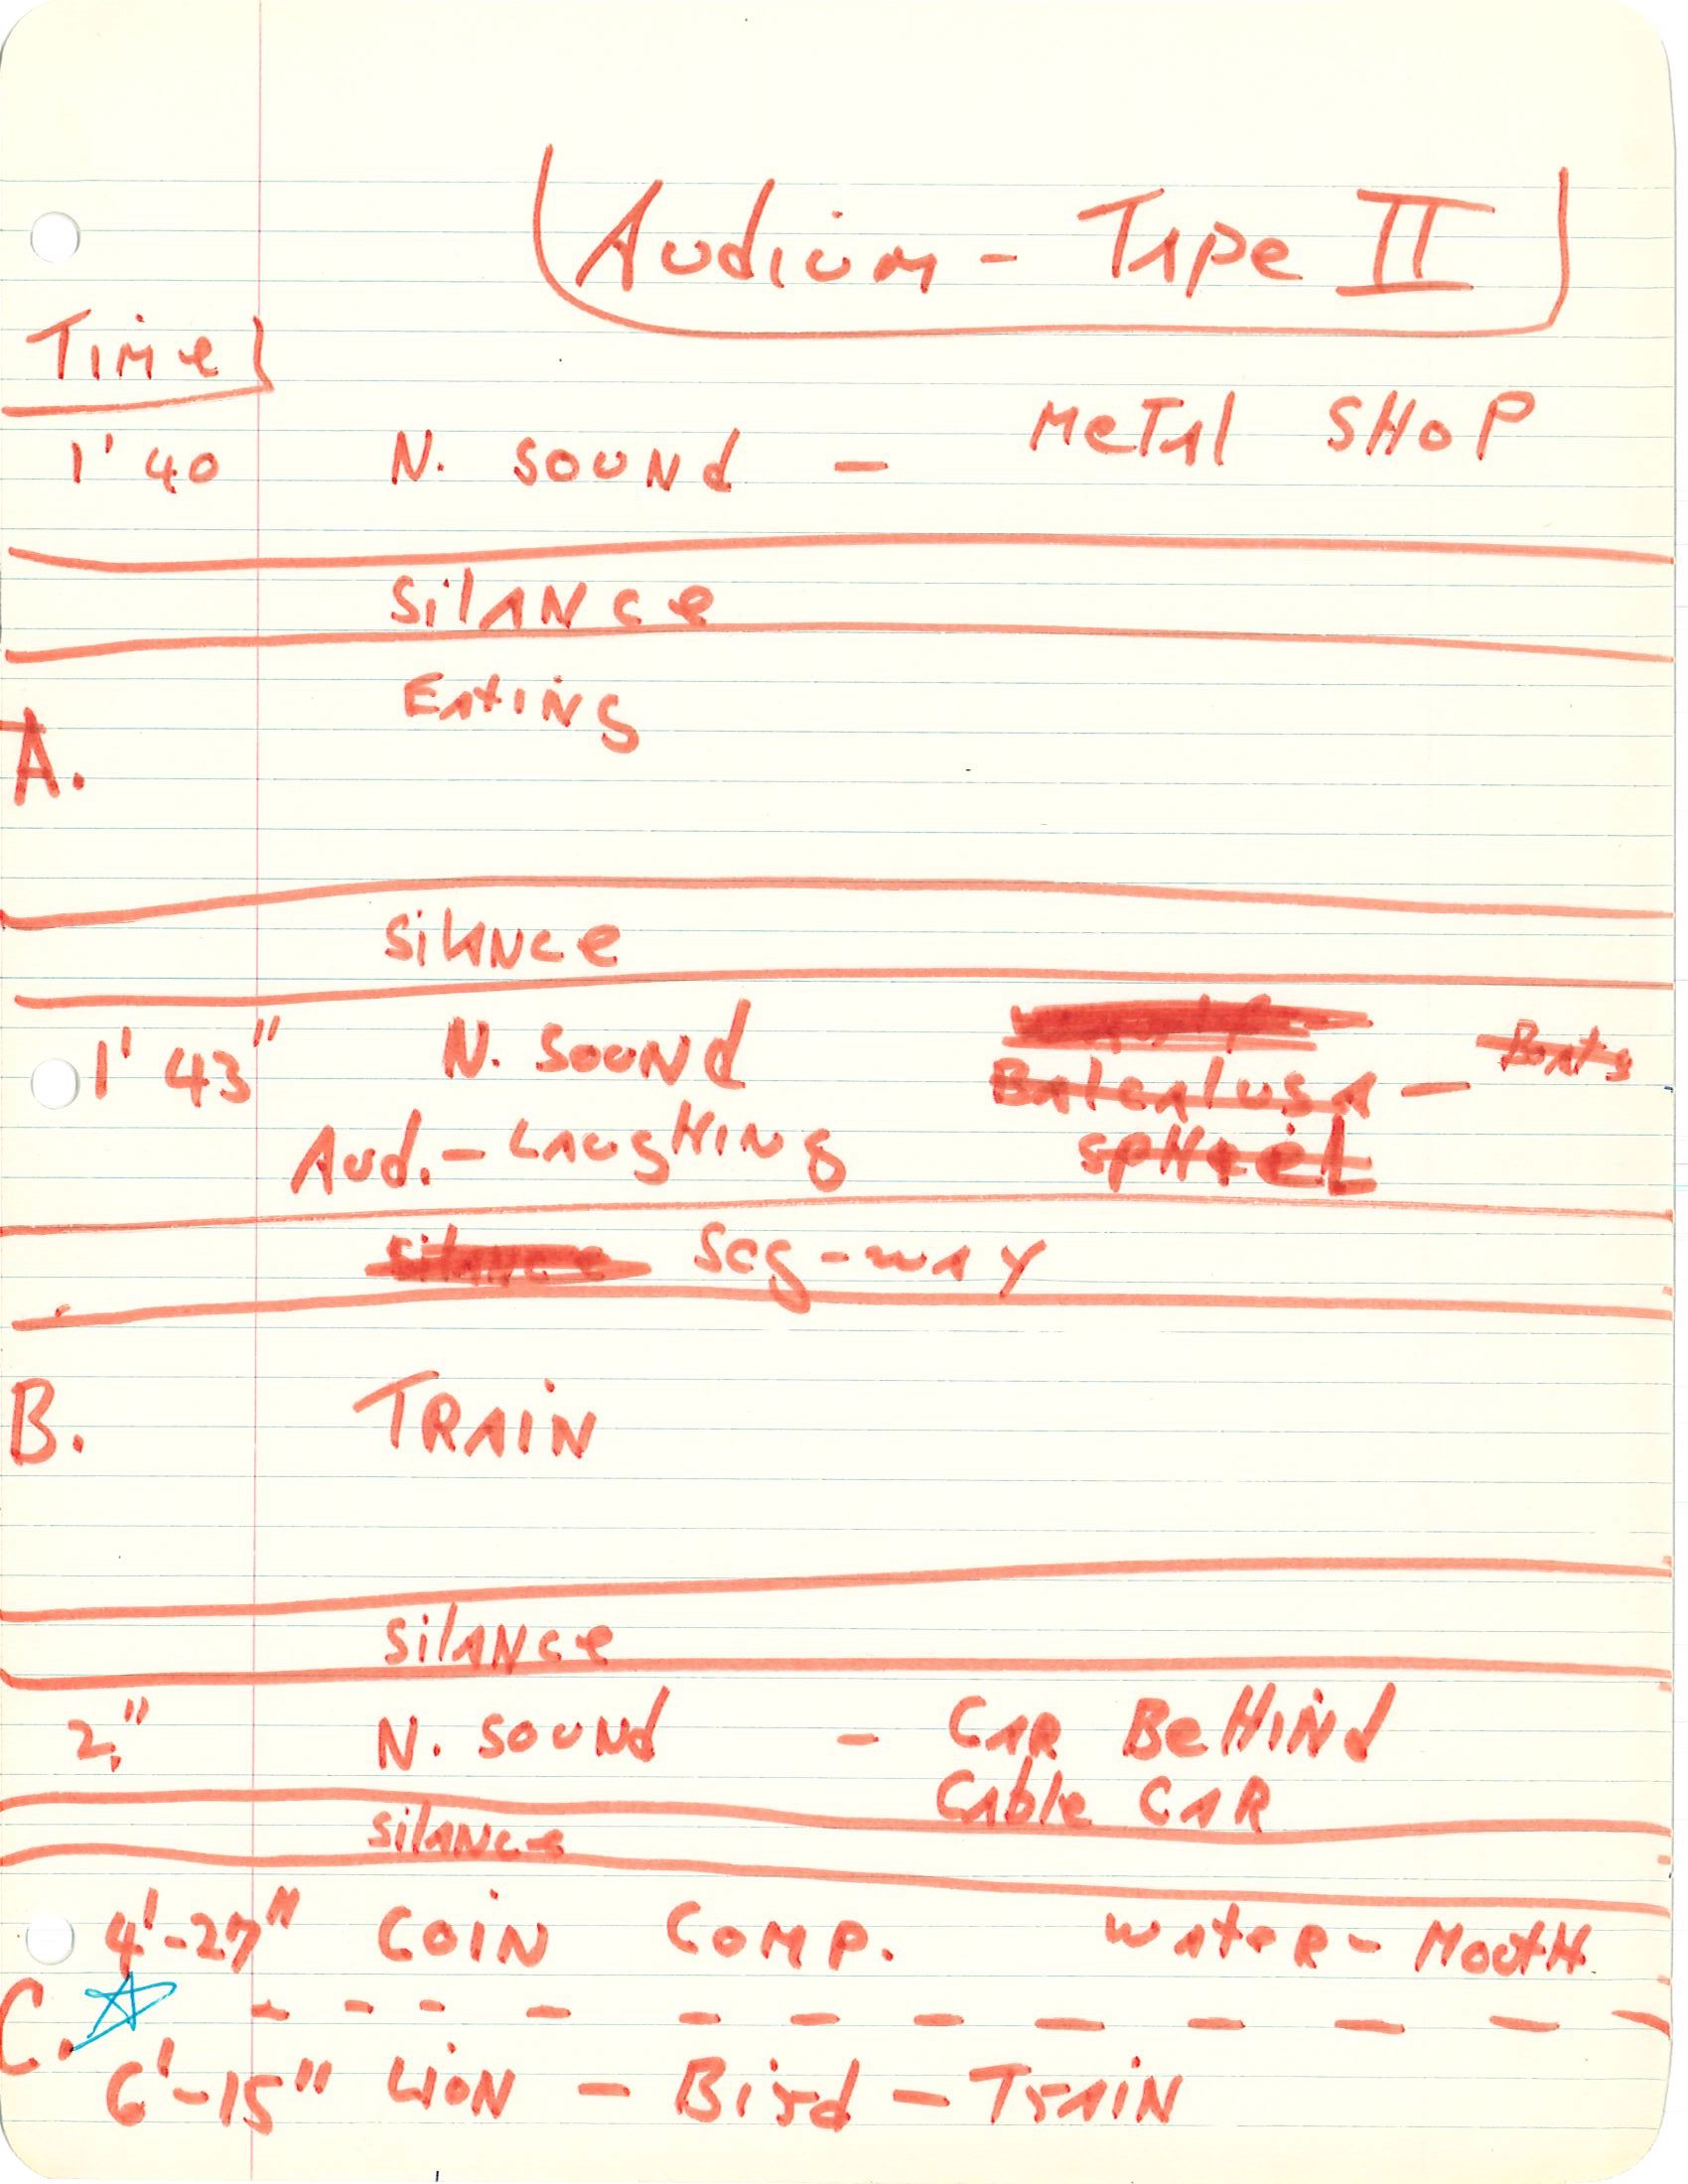 Audium - Tape II
Time
1' 40 N. Sound - Metal Shop
Silance
Eating
A.
Silance
1' 43" N. Sound
Aud. - Laughing
Silance Seg-way
B. TRAIN
Silance
2" N. Sound - CAR BeHiNd
Cable CAR
Silance
4'-27" COIN COMP. Water - Mouth
C.
6'-15" Lion - Bird - Train